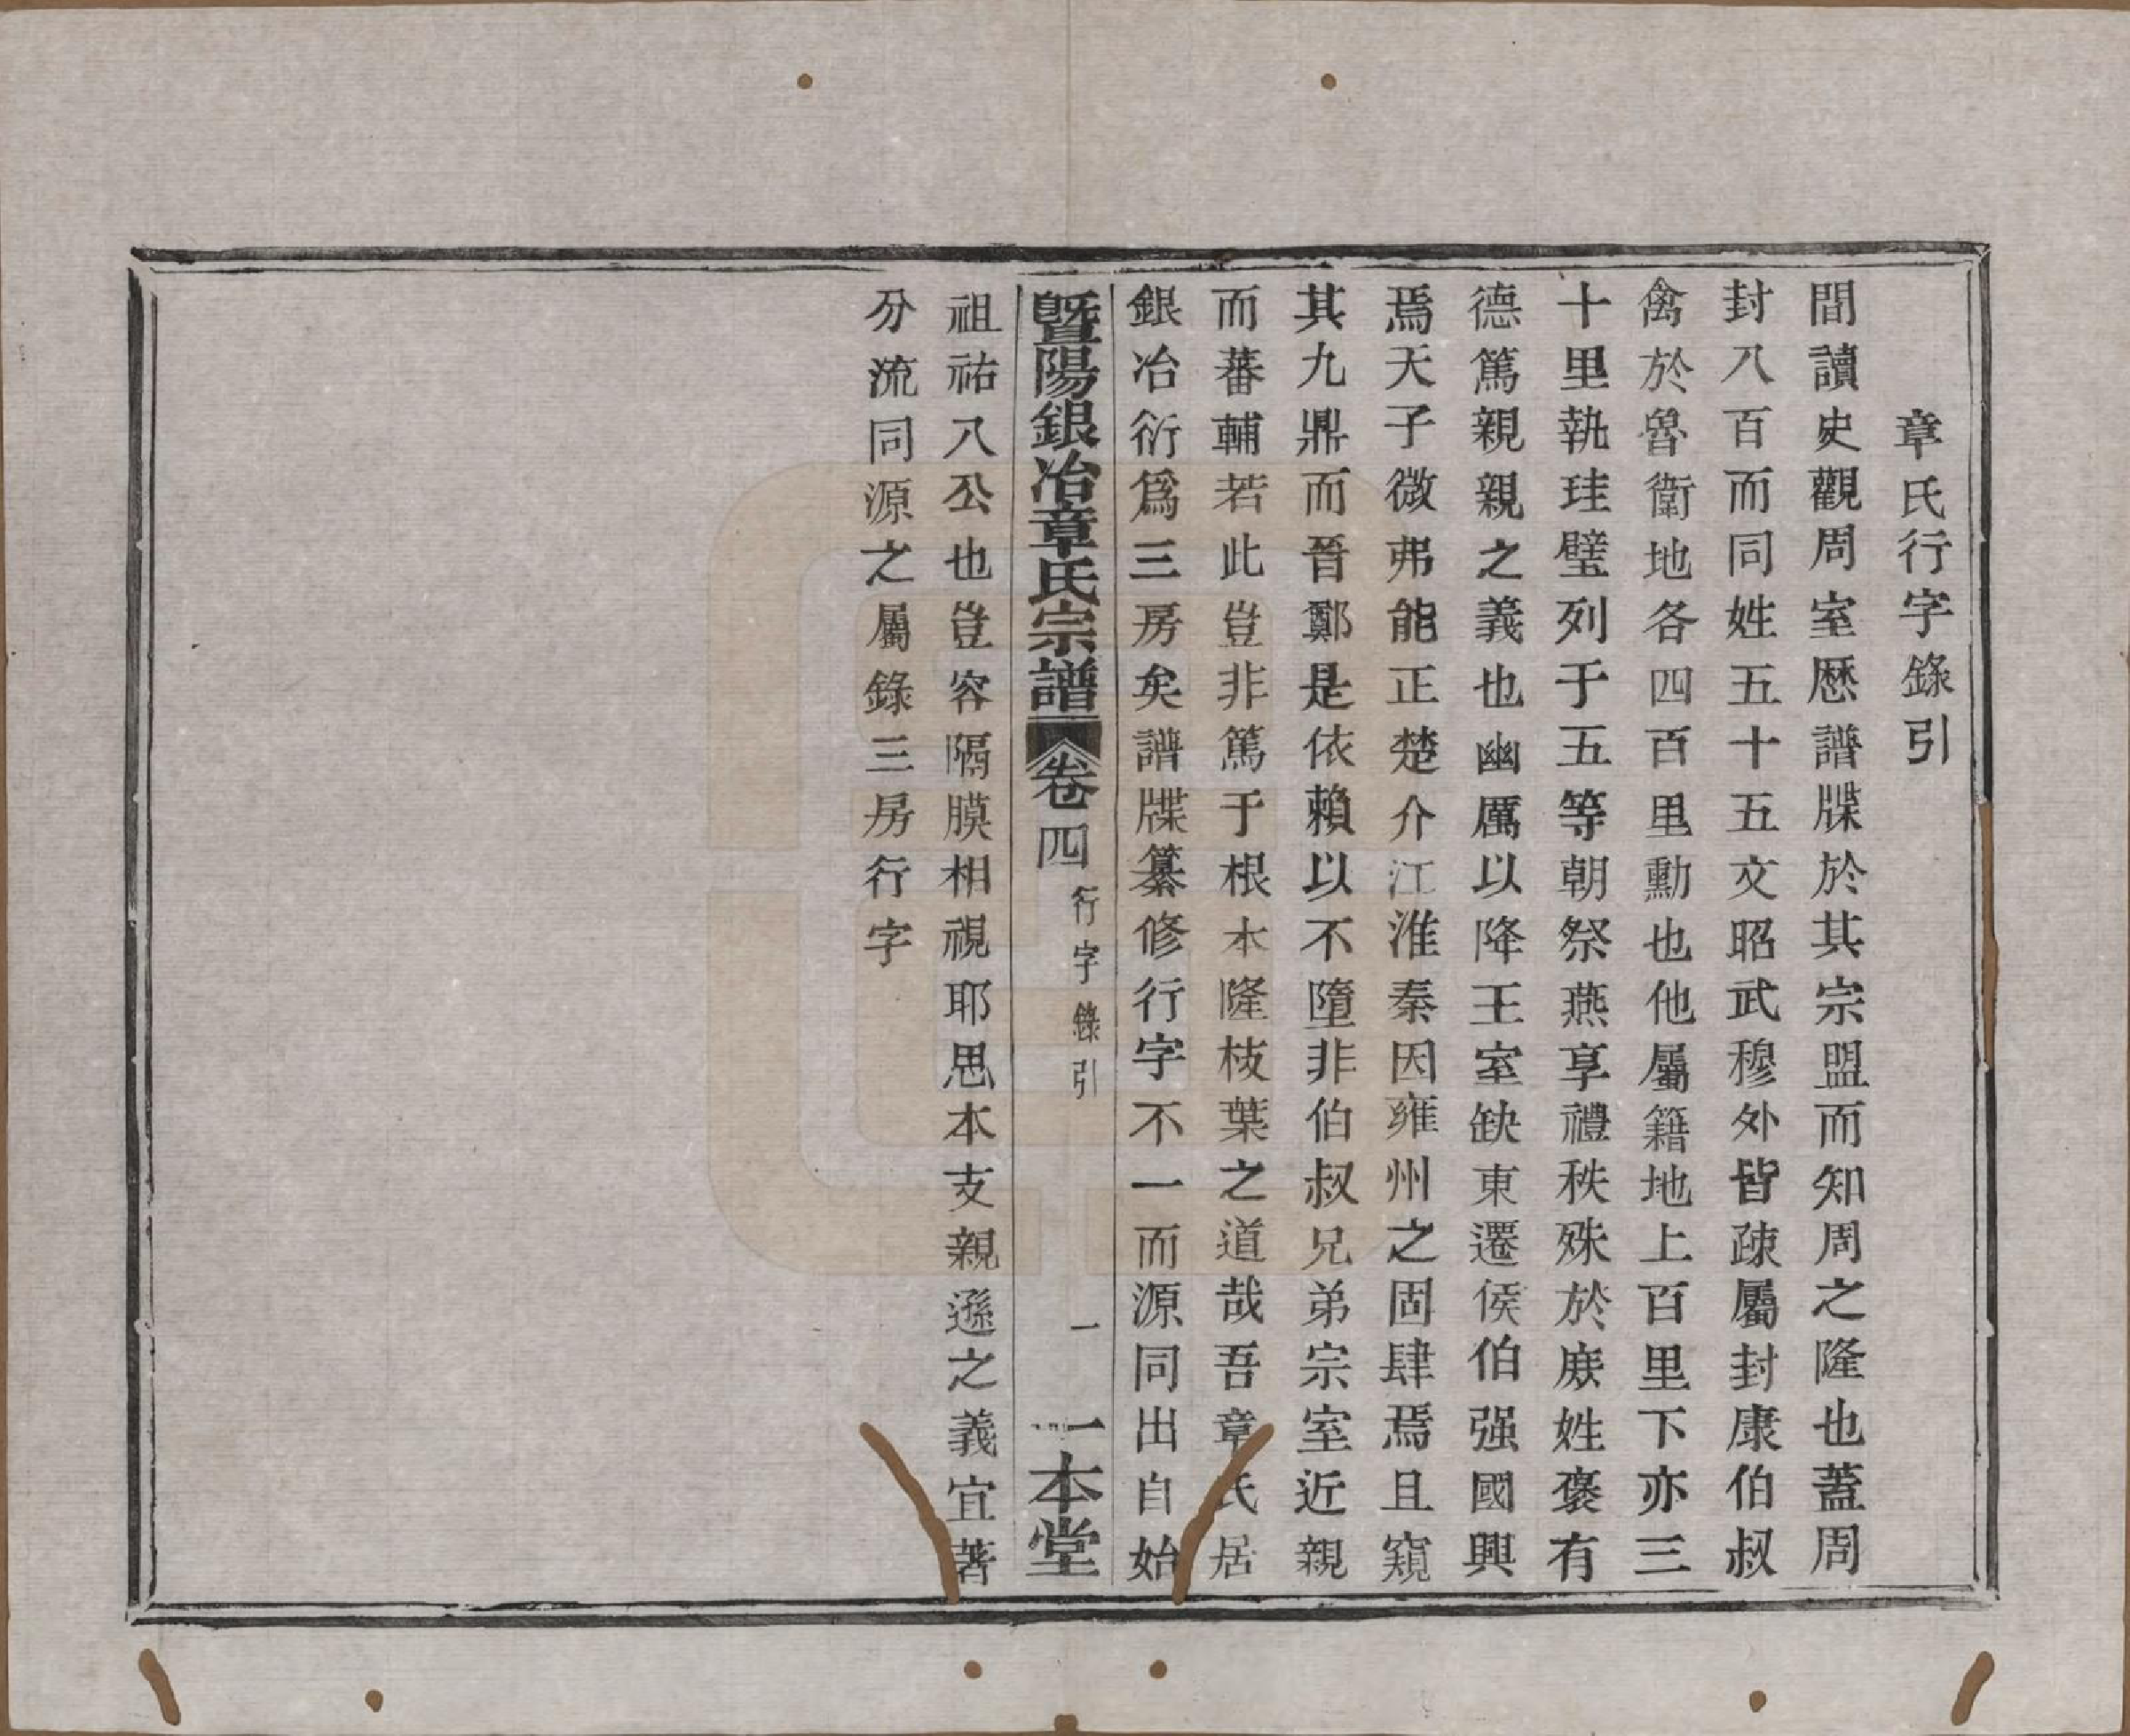 章氏行字錄引
間讀史觀周室懕譜牒於其宗盟而知周之隆也蓋周
封八百而同姓五十五文昭武穆外皆疎屬封康伯叔
禽於魯衛地各四百里勳也他屬籍地上百里下亦三
十里執珪璧列于五等朝祭燕享禮秩殊於庶姓褒有
德篤親親之義也幽厲以降王室缺東遷侯伯强國興
焉天子微弗能正楚介江淮秦因雍州之固肆焉且窺
其九鼎而晉鄭是依賴以不墮非伯叔兄弟宗室近親
而蕃輔若此豈非篤于根本隆枝葉之道哉吾章氏居
銀冶衍爲三房矣譜牒纂修行字不一而源同出自始
暨陽銀冶章氏宗譜 卷四 行字錄引 一 一本堂
祖祐八公也豈容隔膜相視耶思本支親遜之義宜著
分流同源之屬錄三房行字